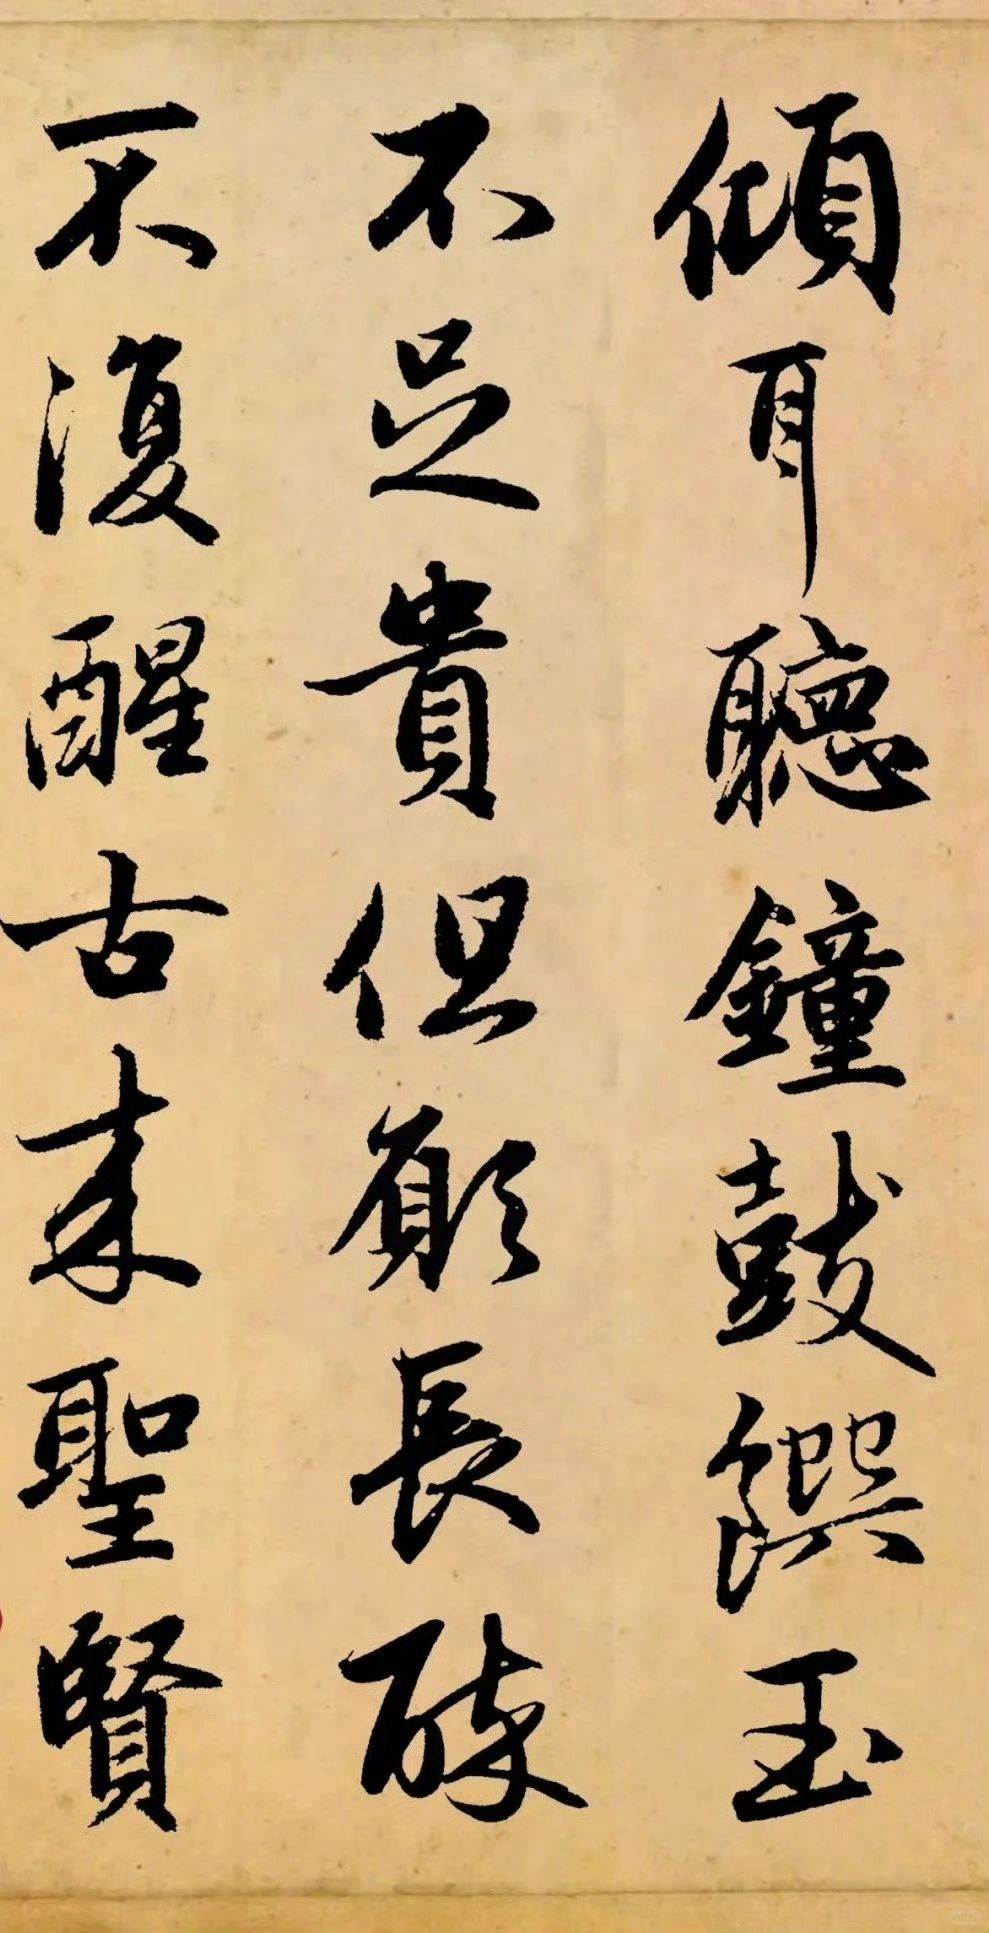 傾耳聽鐘鼓饌玉
不足貴但願長醉
不復醒古来聖賢